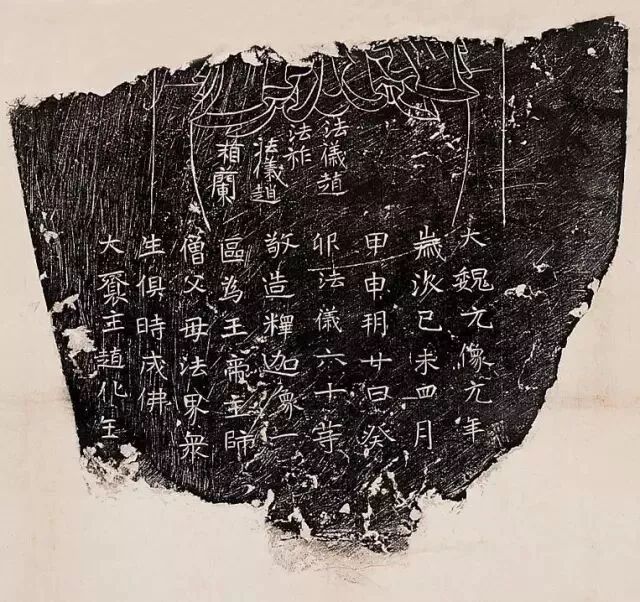 法儀趙
法祚
法儀趙
蘭
大魏元像元年
歲次己未四月
甲申朔廿日癸
卯法儀六十等
敬造釋迦像一
區為王帝主師
僧父母法界衆
生俱時成佛
大主趙化